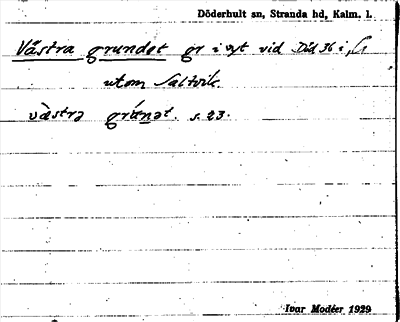 Döderhult sn, Stranda hd, Kalm. l.
Västra grundet gr i syt vid Död 36 i,
utom Saltvik.
västrə grúnət. s. 23.
Ivar Modéer 1929